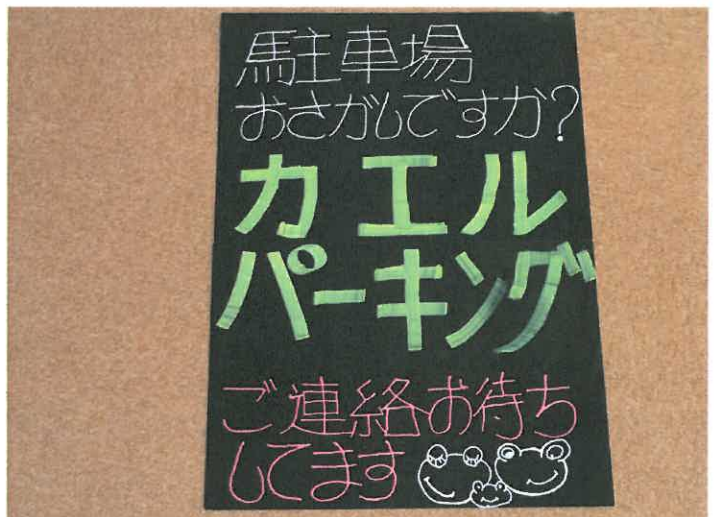 駐車場
おさがしですか?
カエル
パーキング
ご連絡お待ち
してます